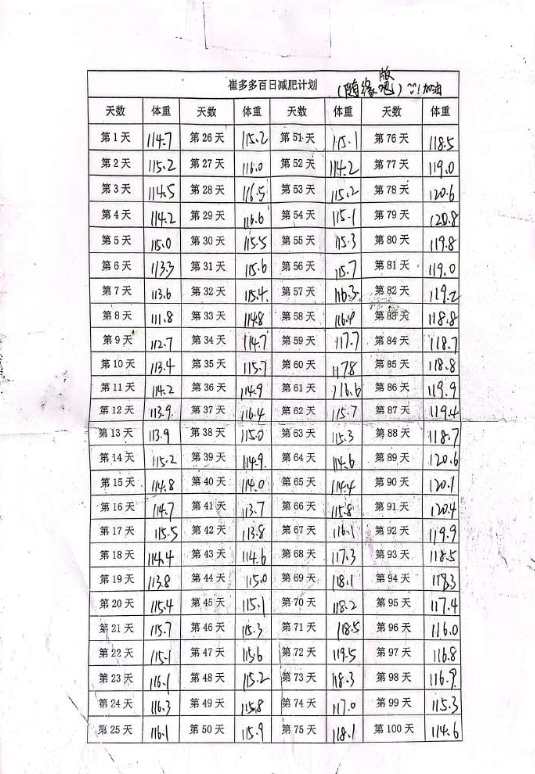 崔多多百日减肥计划 (随缘版吧) ~!加油
天数 体重 天数 体重 天数 体重 天数 体重
第1天 114.7 第26天 115.2 第51天 115.1 第76天 118.5
第2天 115.2 第27天 116.0 第52天 114.2 第77天 119.0
第3天 114.5 第28天 116.5 第53天 115.2 第78天 120.6
第4天 114.2 第29天 116.6 第54天 115.1 第79天 120.8
第5天 115.0 第30天 115.5 第55天 115.3 第80天 119.8
第6天 113.3 第31天 115.6 第56天 115.7 第81天 119.0
第7天 113.6 第32天 115.4 第57天 116.3 第82天 119.2
第8天 111.8 第33天 114.8 第58天 116.9 第83天 118.8
第9天 112.7 第34天 114.7 第59天 117.7 第84天 118.7
第10天 113.4 第35天 115.7 第60天 117.8 第85天 118.8
第11天 114.2 第36天 114.9 第61天 116.6 第86天 119.9
第12天 113.9 第37天 116.4 第62天 115.7 第87天 119.4
第13天 113.9 第38天 115.0 第63天 115.3 第88天 118.7
第14天 115.2 第39天 114.9 第64天 114.6 第89天 120.6
第15天 114.8 第40天 114.0 第65天 114.4 第90天 120.1
第16天 114.7 第41天 113.7 第66天 115.8 第91天 120.4
第17天 115.5 第42天 113.8 第67天 116.1 第92天 119.9
第18天 114.4 第43天 114.6 第68天 117.3 第93天 118.5
第19天 113.8 第44天 115.0 第69天 118.1 第94天 118.3
第20天 115.4 第45天 115.1 第70天 118.2 第95天 117.4
第21天 115.7 第46天 115.3 第71天 118.5 第96天 116.0
第22天 115.1 第47天 115.6 第72天 119.5 第97天 116.8
第23天 116.1 第48天 115.2 第73天 118.3 第98天 116.9
第24天 116.3 第49天 115.8 第74天 117.0 第99天 115.3
第25天 116.1 第50天 115.9 第75天 118.1 第100天 114.6